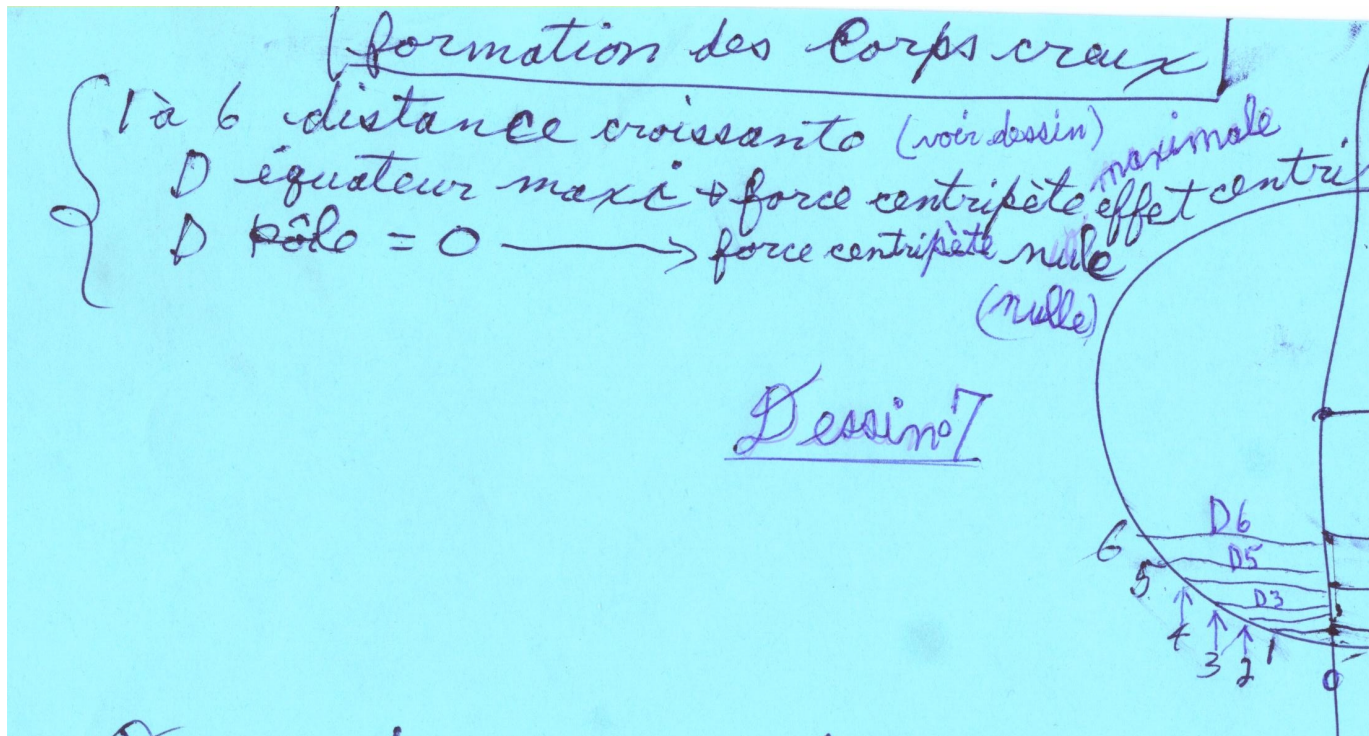 formation des Corps creux
1 à 6 distance croissante (voir dessin)
maximale
D équateur maxi → force centripète effet centri
D pôle = 0 → force centripète nule
(nulle)
Dessin n° 7
D6
6
D5
5
D3
4
3
2
1
0